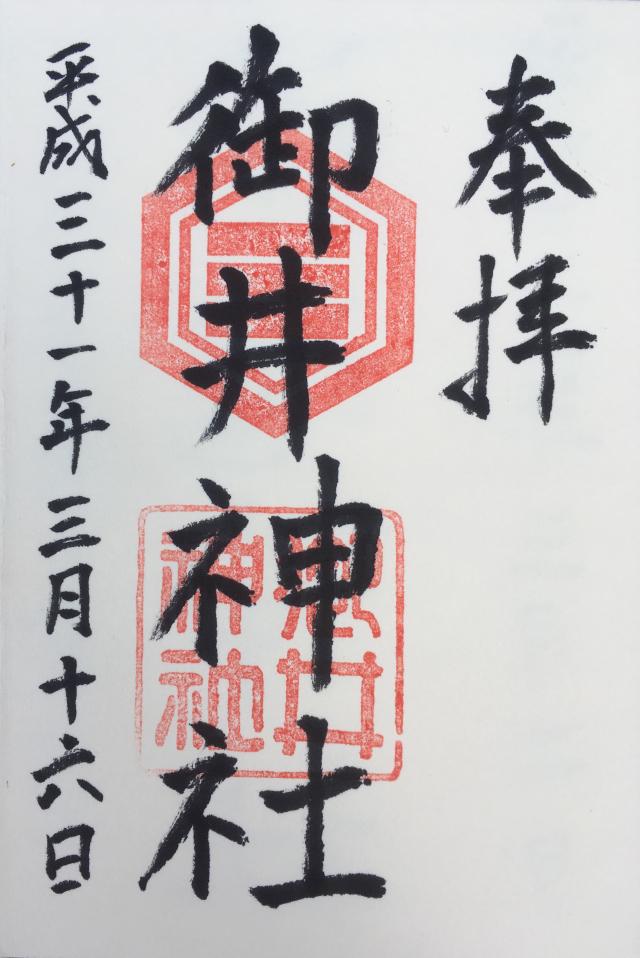 奉拝
御井神社
平成三十一年三月十六日
井
神社